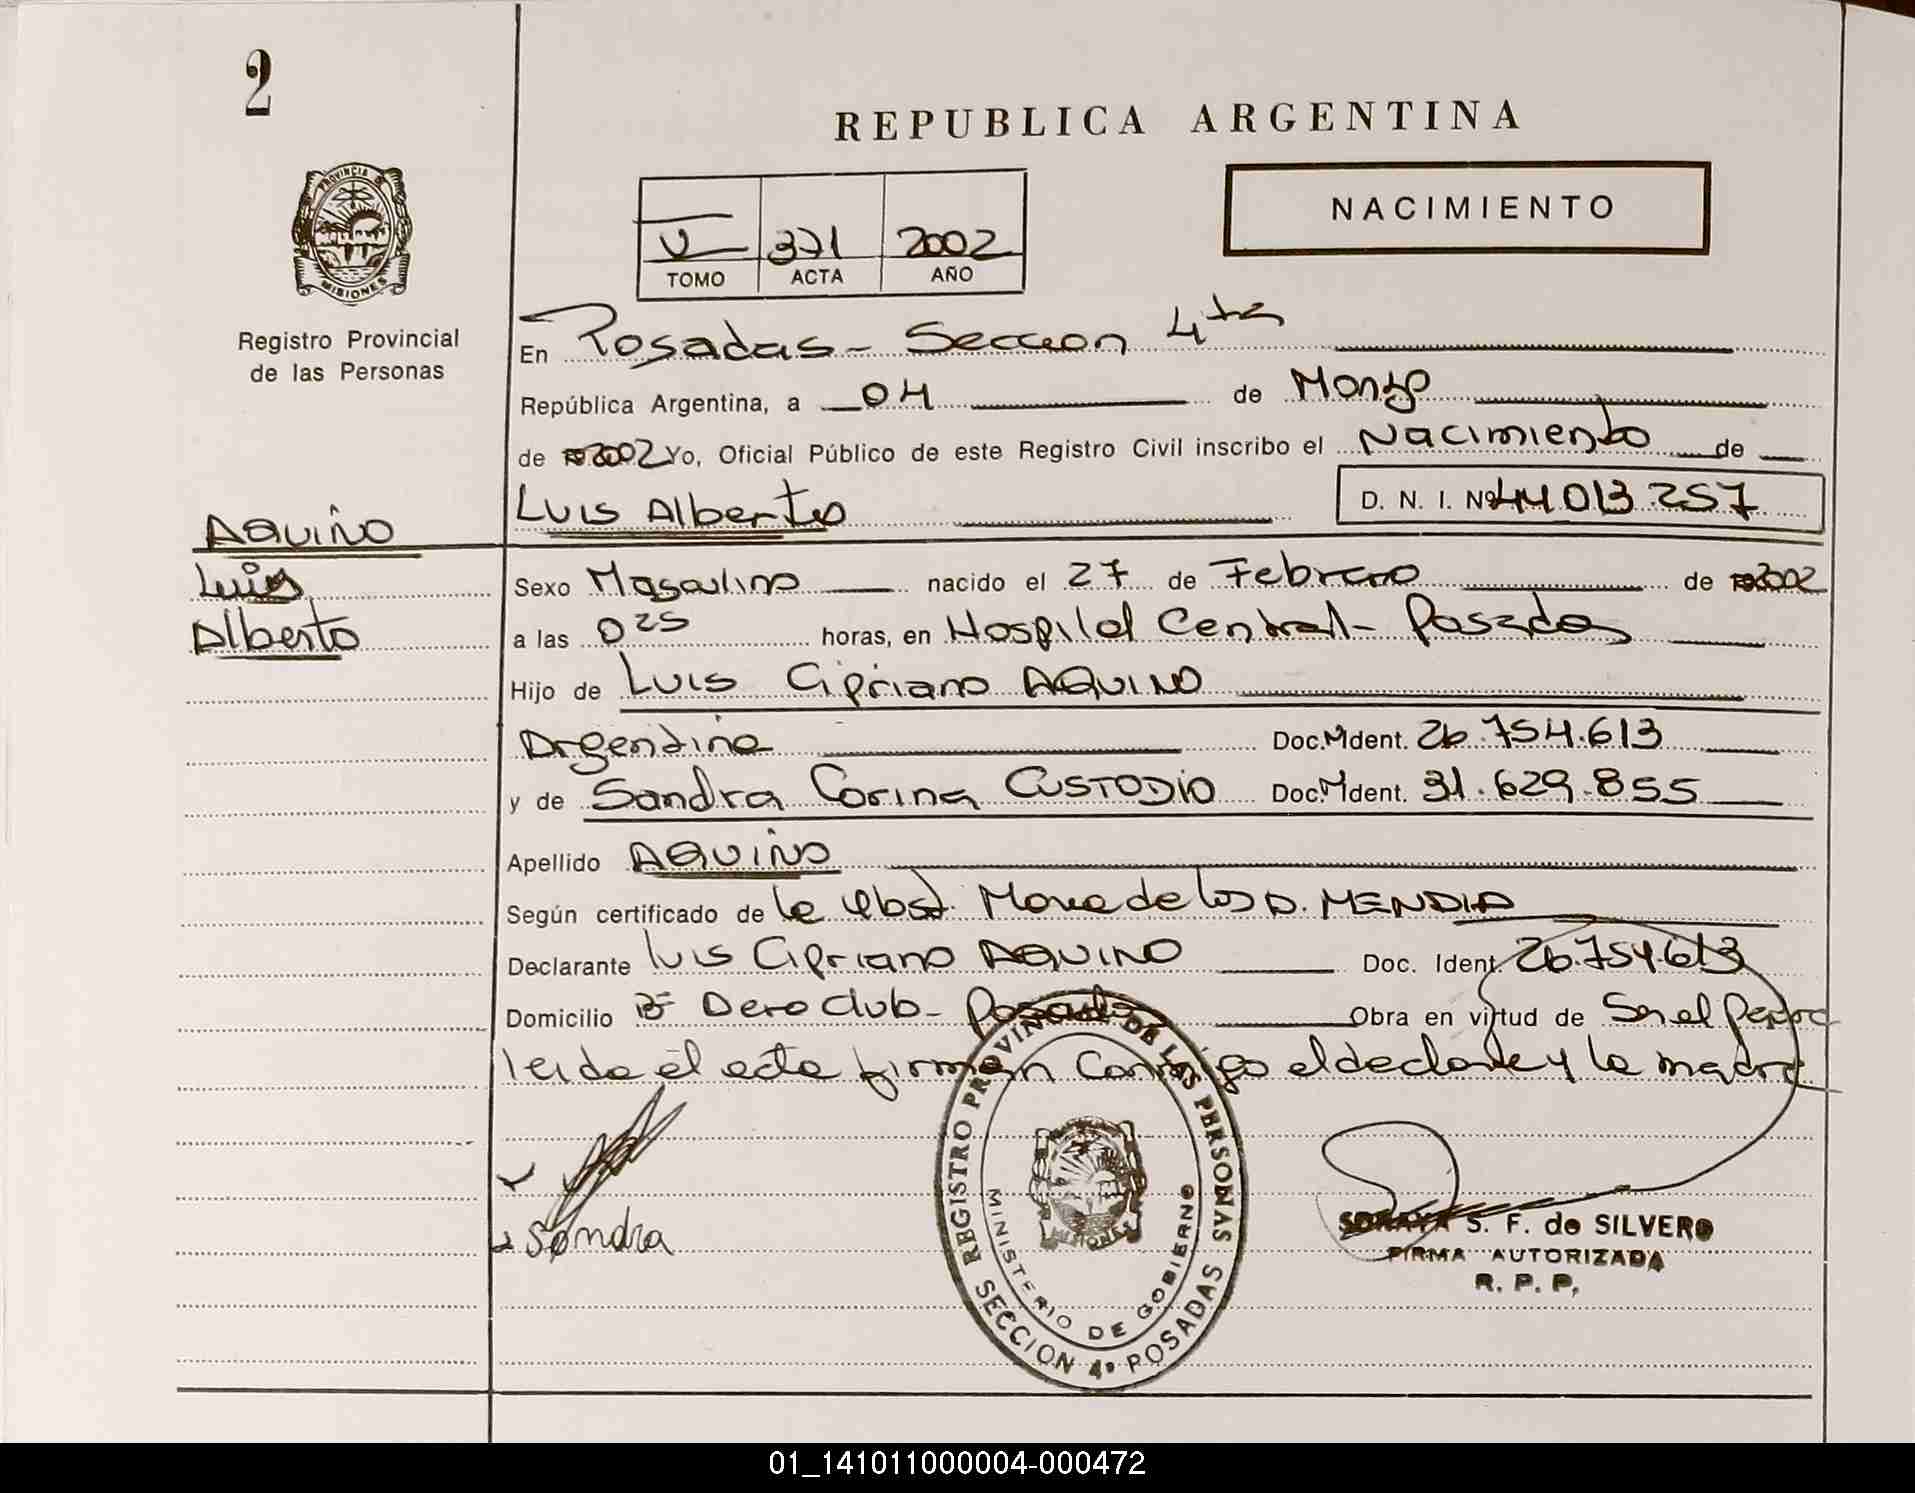 2
REPUBLICA ARGENTINA
NACIMIENTO
PROVINCIA DE
MISIONES
V 371 2002
TOMO ACTA AÑO
Registro Provincial
de las Personas
En Posadas - Seccion 4ta
República Argentina, a 04 de Marzo
de 2002 Yo, Oficial Público de este Registro Civil inscribo el Nacimiento de
Luis Alberto D. N. I. Nº 44.013.257
AQUINO
Luis
Alberto
Sexo Masculino nacido el 27 de Febrero de 2002
a las 0 25 horas, en Hospital Central - Posadas
Hijo de Luis Cipriano AQUINO
Argentino Doc. M Ident. 26.754.613
y de Sandra Corina CUSTODIO Doc. M Ident. 31.629.855
Apellido AQUINO
Según certificado de la Obst. Maria de los D. MENDIA
Declarante Luis Cipriano AQUINO Doc. Ident. 26.754.613
Domicilio Bº Aero Club - Posadas Obra en virtud de Ser el Padre
leida el acta firman Conmigo el declarante y la madre
Sandra
REGISTRO PROVINCIAL DE LAS PERSONAS
MINISTERIO DE GOBIERNO
MISIONES
SECCION 4ª POSADAS
SORAYA S. F. de SILVERO
FIRMA AUTORIZADA
R. P. P.
01_141011000004-000472